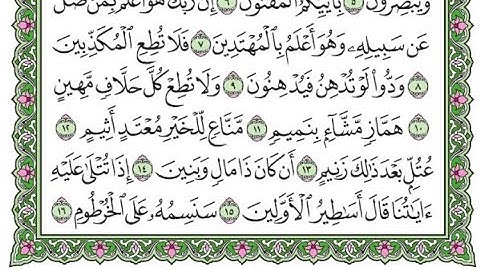 وَيُبْصِرُونَ ٥ بِأَييِّكُمُ ٱلْمَفْتُونُ ٦ إِنَّ رَبَّكَ هُوَ أَعْلَمُ بِمَن ضَلَّ
عَن سَبِيلِهِۦ وَهُوَ أَعْلَمُ بِٱلْمُهْتَدِينَ ٧ فَلَا تُطِعِ ٱلْمُكَذِّبِينَ
٨ وَدُّوا۟ لَوْ تُدْهِنُ فَيُدْهِنُونَ ٩ وَلَا تُطِعْ كُلَّ حَلَّافٍ مَّهِينٍ
١٠ هَمَّازٍ مَّشَّآءٍۭ بِنَمِيمٍ ١١ مَّنَّاعٍ لِّلْخَيْرِ مُعْتَدٍ أَثِيمٍ ١٢
عُتُلٍّۭ بَعْدَ ذَٰلِكَ زَنِيمٍ ١٣ أَن كَانَ ذَا مَالٍ وَبَنِينَ ١٤ إِذَا تُتْلَىٰ عَلَيْهِ
ءَايَٰتُنَا قَالَ أَسَٰطِيرُ ٱلْأَوَّلِينَ ١٥ سَنَسِمُهُۥ عَلَى ٱلْخُرْطُومِ ١٦